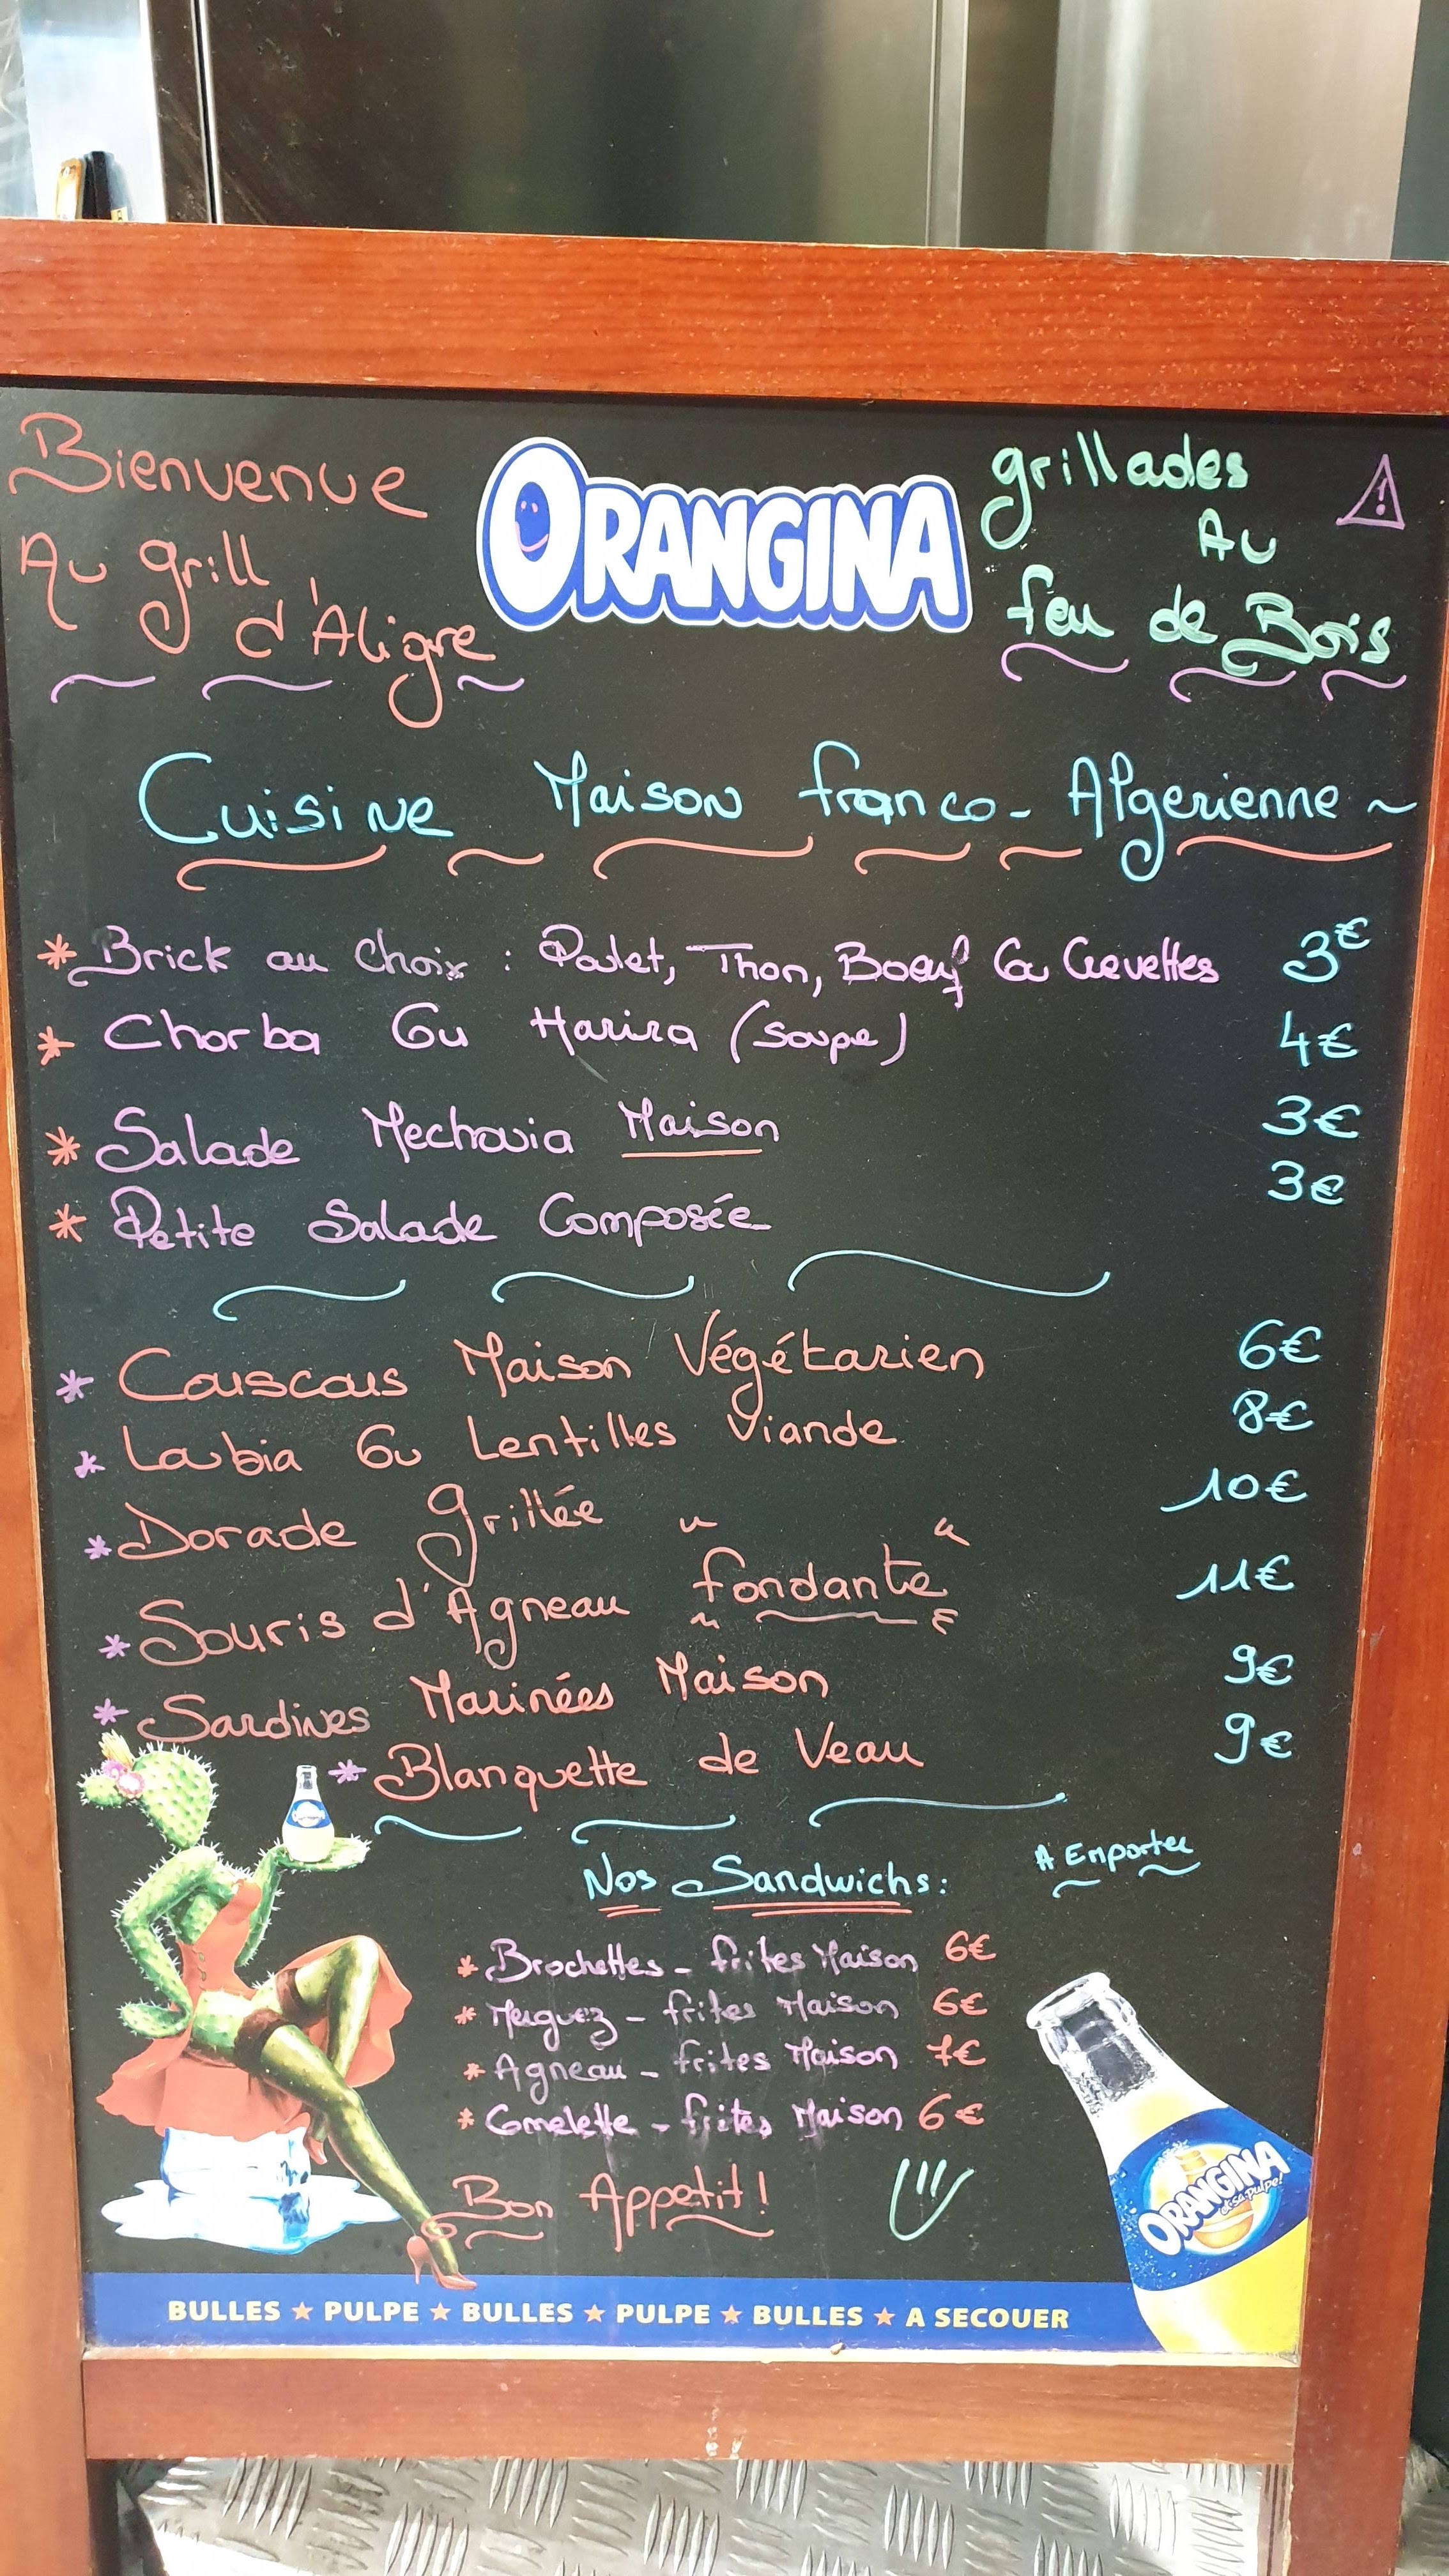 Bienvenue
Au grill
d'Aligre
ORANGINA
grillades
Au
feu de Bois
Cuisine Maison franco-Algerienne ~
* Brick au choix : Poulet, Thon, Boeuf Ou Crevettes 3€
* Chorba Ou Harira (soupe) 4€
* Salade Mechouia Maison 3€
* Petite Salade Composée 3€
* Couscous Maison Végétarien 6€
* Loubia Ou Lentilles Viande 8€
* Dorade grillée 10€
* Souris d'Agneau "fondante" 11€
* Sardines Marinées Maison 9€
* Blanquette de Veau 9€
Nos Sandwichs :
A Emporter
* Brochettes - frites Maison 6€
* Merguez - frites Maison 6€
* Agneau - frites Maison 7€
* Omelette - frites Maison 6€
Bon Appetit !
ORANGINA
et sa pulpe!
BULLES ★ PULPE ★ BULLES ★ PULPE ★ BULLES ★ A SECOUER